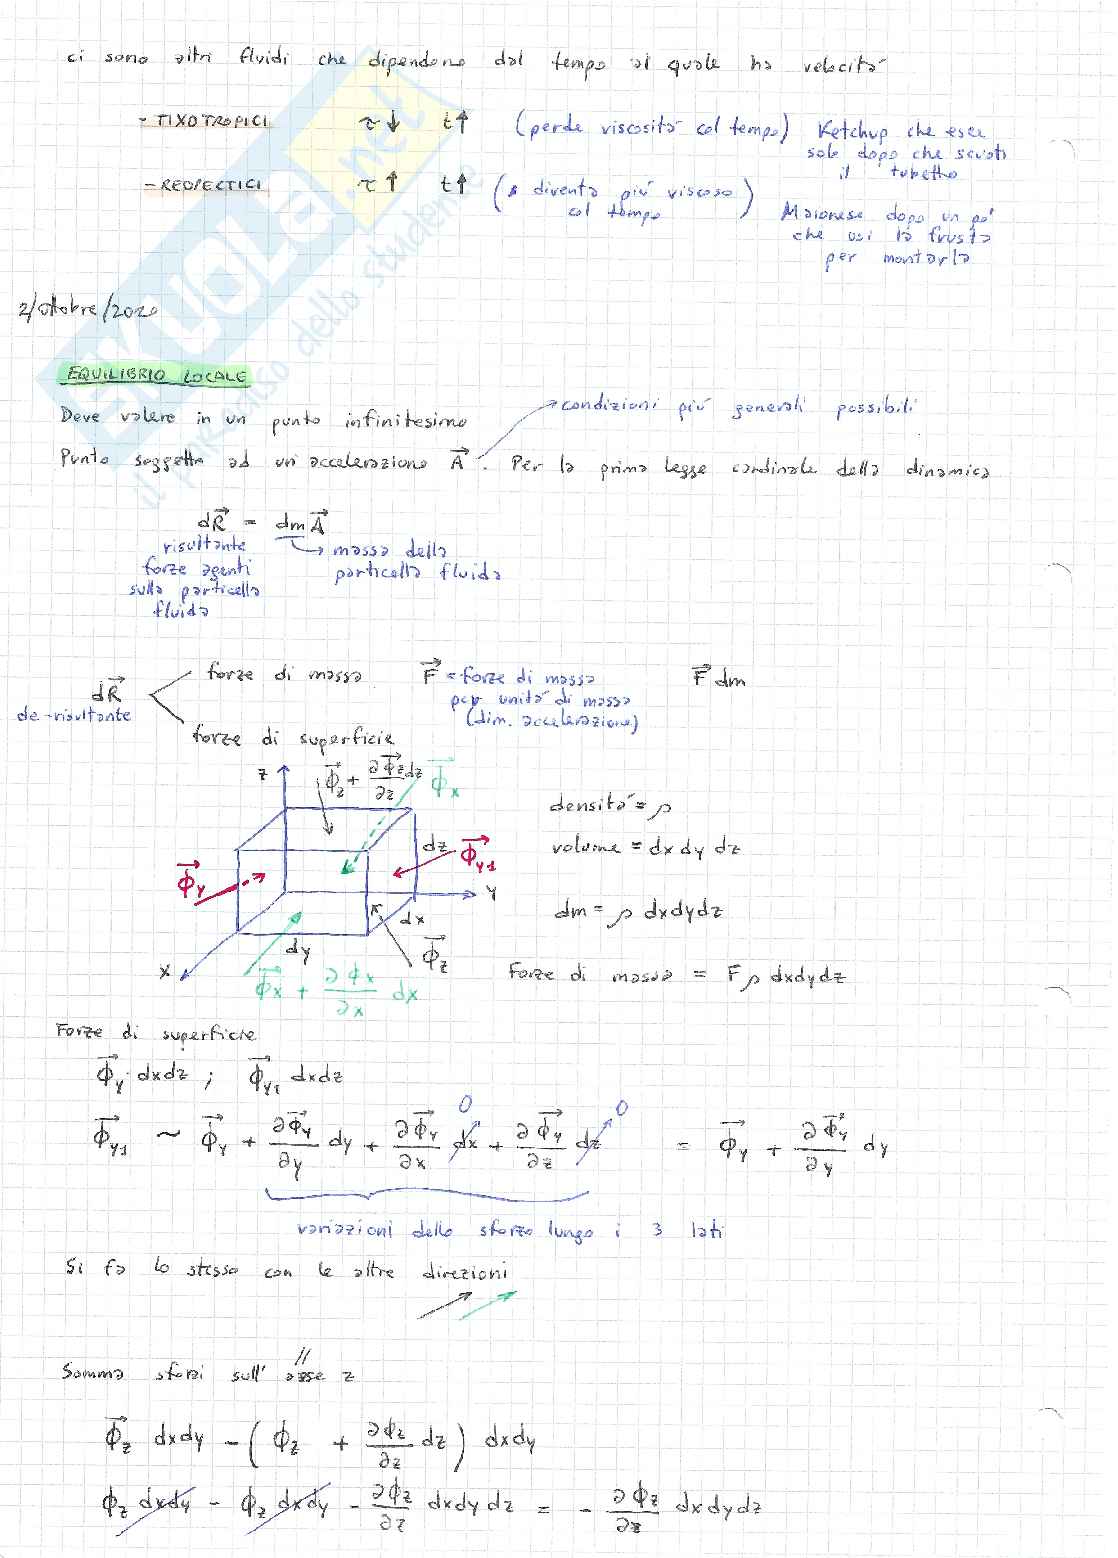 ci sono altri fluidi che dipendono dal tempo al quale ha velocità
- TIXOTROPICI τ↓ t↑ (perde viscosità col tempo) Ketchup che esce
solo dopo che scuoti
il tubetto
- REOPECTICI τ↑ t↑ (diventa più viscoso
col tempo)
Maionese dopo un po'
che usi la frusta
per montarla
2/ottobre/2020
EQUILIBRIO LOCALE
Deve valere in un punto infinitesimo
condizioni più generali possibili
Punto soggetto ad un'accelerazione A⃗. Per la prima legge cardinale della dinamica
dR⃗ = dm A⃗
risultante
forze agenti
sulla particella
fluida
massa della
particella fluida
dR⃗
de-risultante
forze di massa F⃗ = forze di massa
per unità di massa
(dim. accelerazione)
F⃗ dm
forze di superficie
z Φ⃗z + ∂Φ⃗z/∂z dz Φ⃗x
densità = ρ
dz Φ⃗y1
volume = dx dy dz
Φ⃗y y
dx
dm = ρ dxdydz
dy Φ⃗z
x
Φ⃗x + ∂Φx/∂x dx
Forze di massa = F ρ dxdydz
Forze di superficie
Φ⃗y dxdz ; Φ⃗y1 dxdz
Φ⃗y1 ~ Φ⃗y + ∂Φ⃗y/∂y dy + ∂Φ⃗y/∂x dx 0 + ∂Φ⃗y/∂z dz 0 = Φ⃗y + ∂Φ⃗y/∂y dy
variazioni dello sforzo lungo i 3 lati
Si fa lo stesso con le altre direzioni
Somma sforzi sull' // asse z
Φ⃗z dxdy - (Φz + ∂Φz/∂z dz) dxdy
Φz dxdy - Φz dxdy - ∂Φz/∂z dxdydz = - ∂Φz/∂z dxdydz
SKUOLA.net
il paradiso dello studente